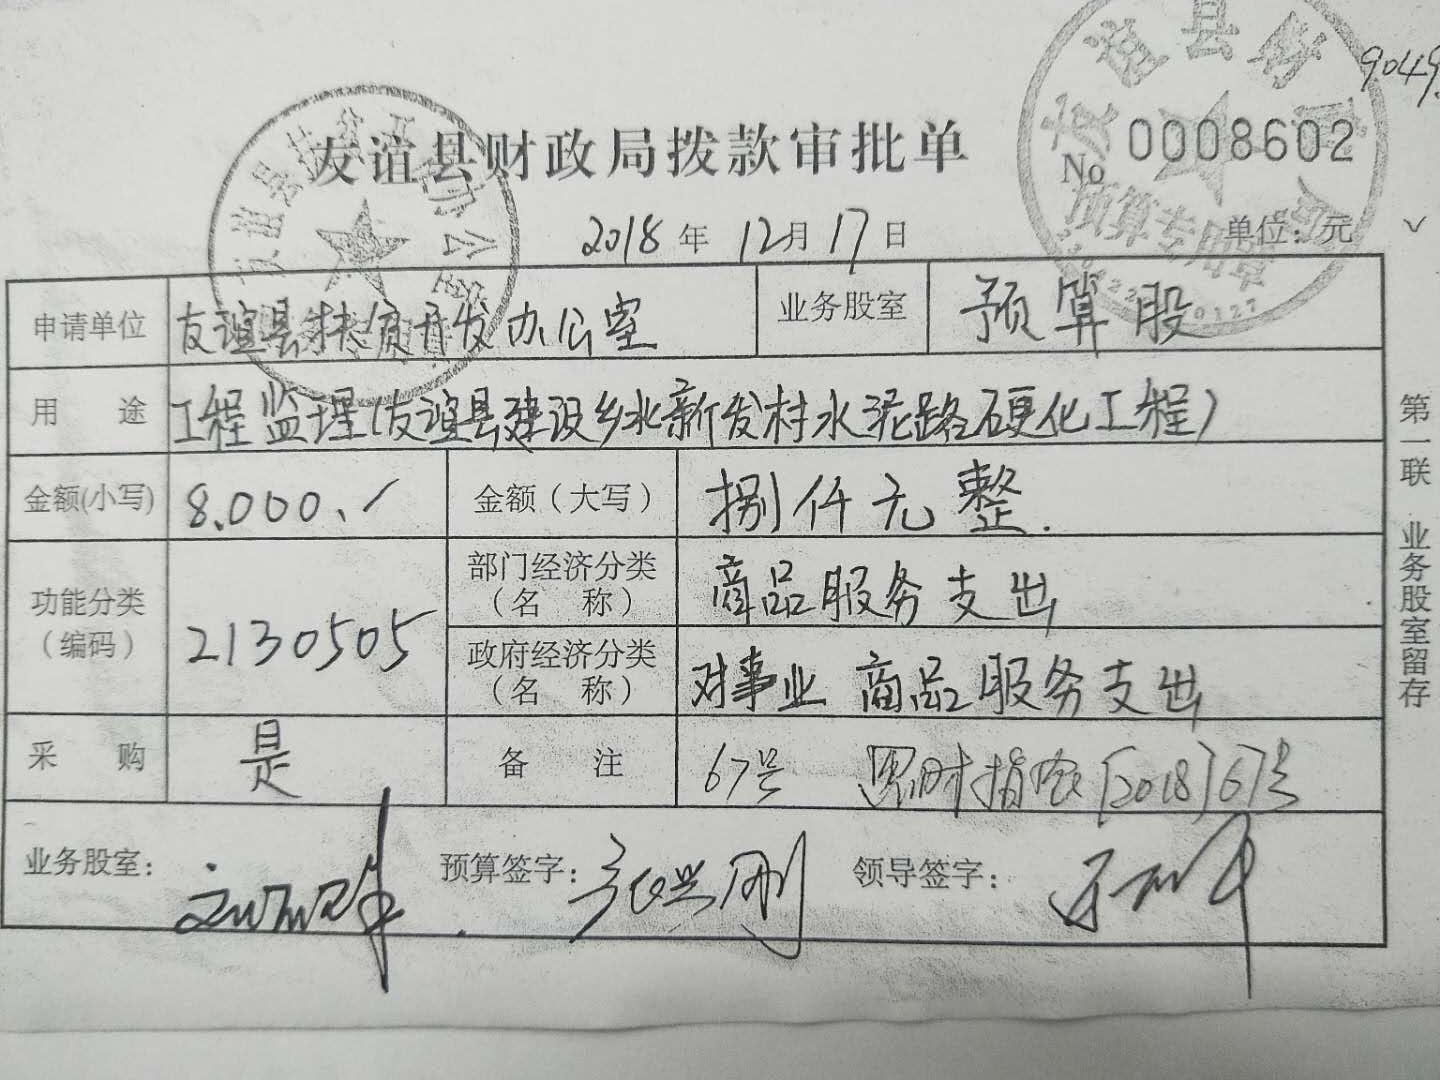 9049
友谊县财政局拨款审批单
No 0008602
2018年12月17日
单位：元
申请单位 友谊县扶贫开发办公室 业务股室 预算股
用 途 工程监理(友谊县建设乡北新发村水泥路硬化工程)
金额(小写) 8.000.
金额（大写） 捌仟元整.
功能分类（编码） 2130505
部门经济分类（名 称） 商品服务支出
政府经济分类（名 称） 对事业 商品服务支出
采 购 是 备 注 67号 财指 [2018]67号
业务股室： 预算签字： 领导签字：
第一联 业务股室留存
预算专用章